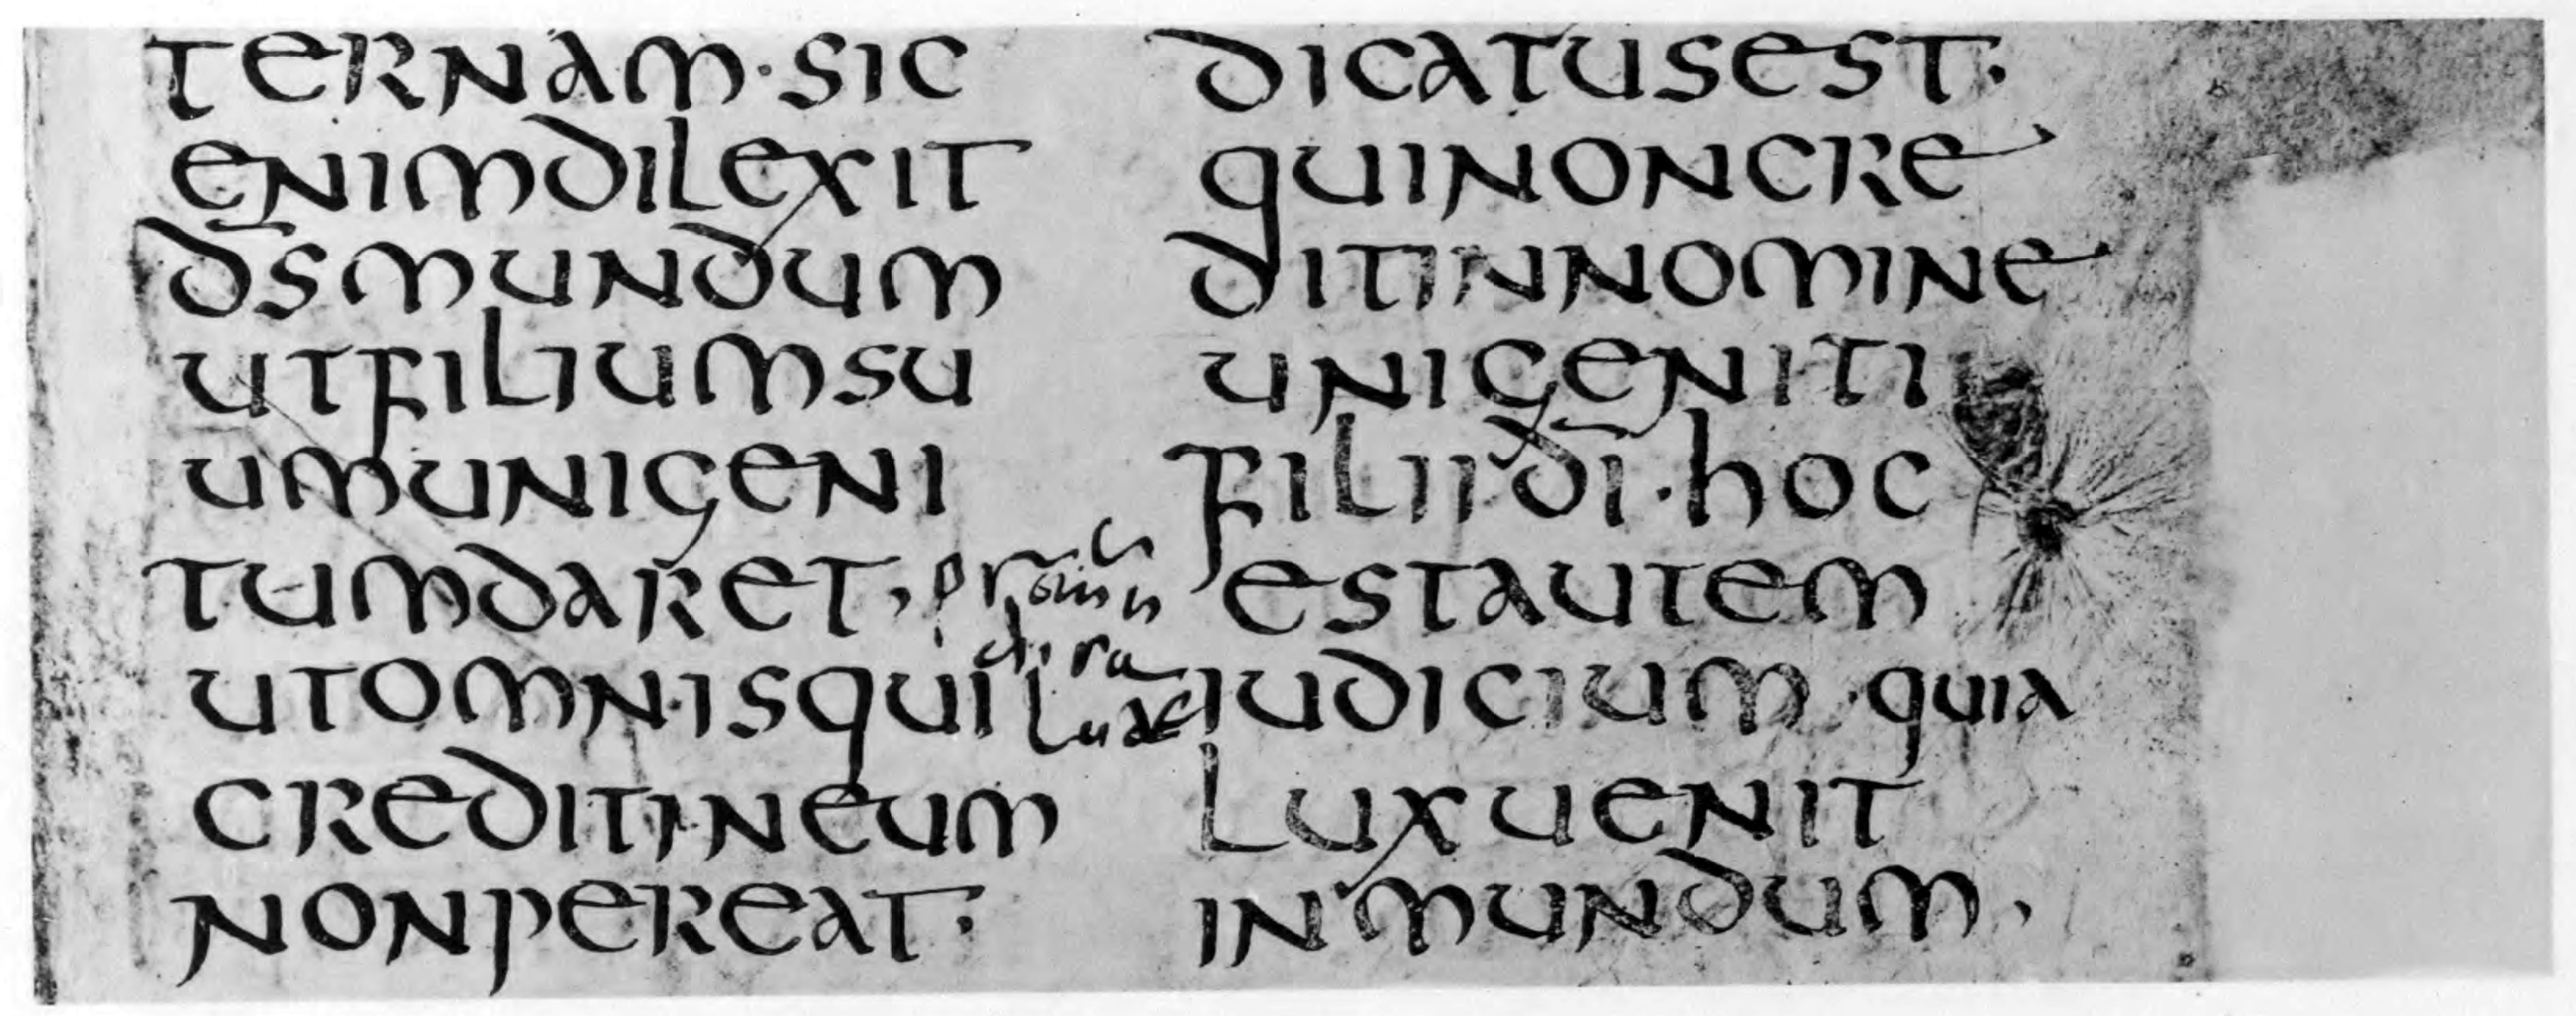 TERNAM·SIC
ENIMDILEXIT
D̄SMUNDUM
UTFILIUMSU
UMUNIGENI
TUMDARET,
UTOMNISQUI
CREDITINEUM
NONPEREAT·
DICATUSEST·
QUINONCRE
DITINNOMINE
UNIGENITI
FILIID̄I·HOC
ESTAUTEM
IUDICIUM·QUIA
LUXUENIT
INMUNDUM,